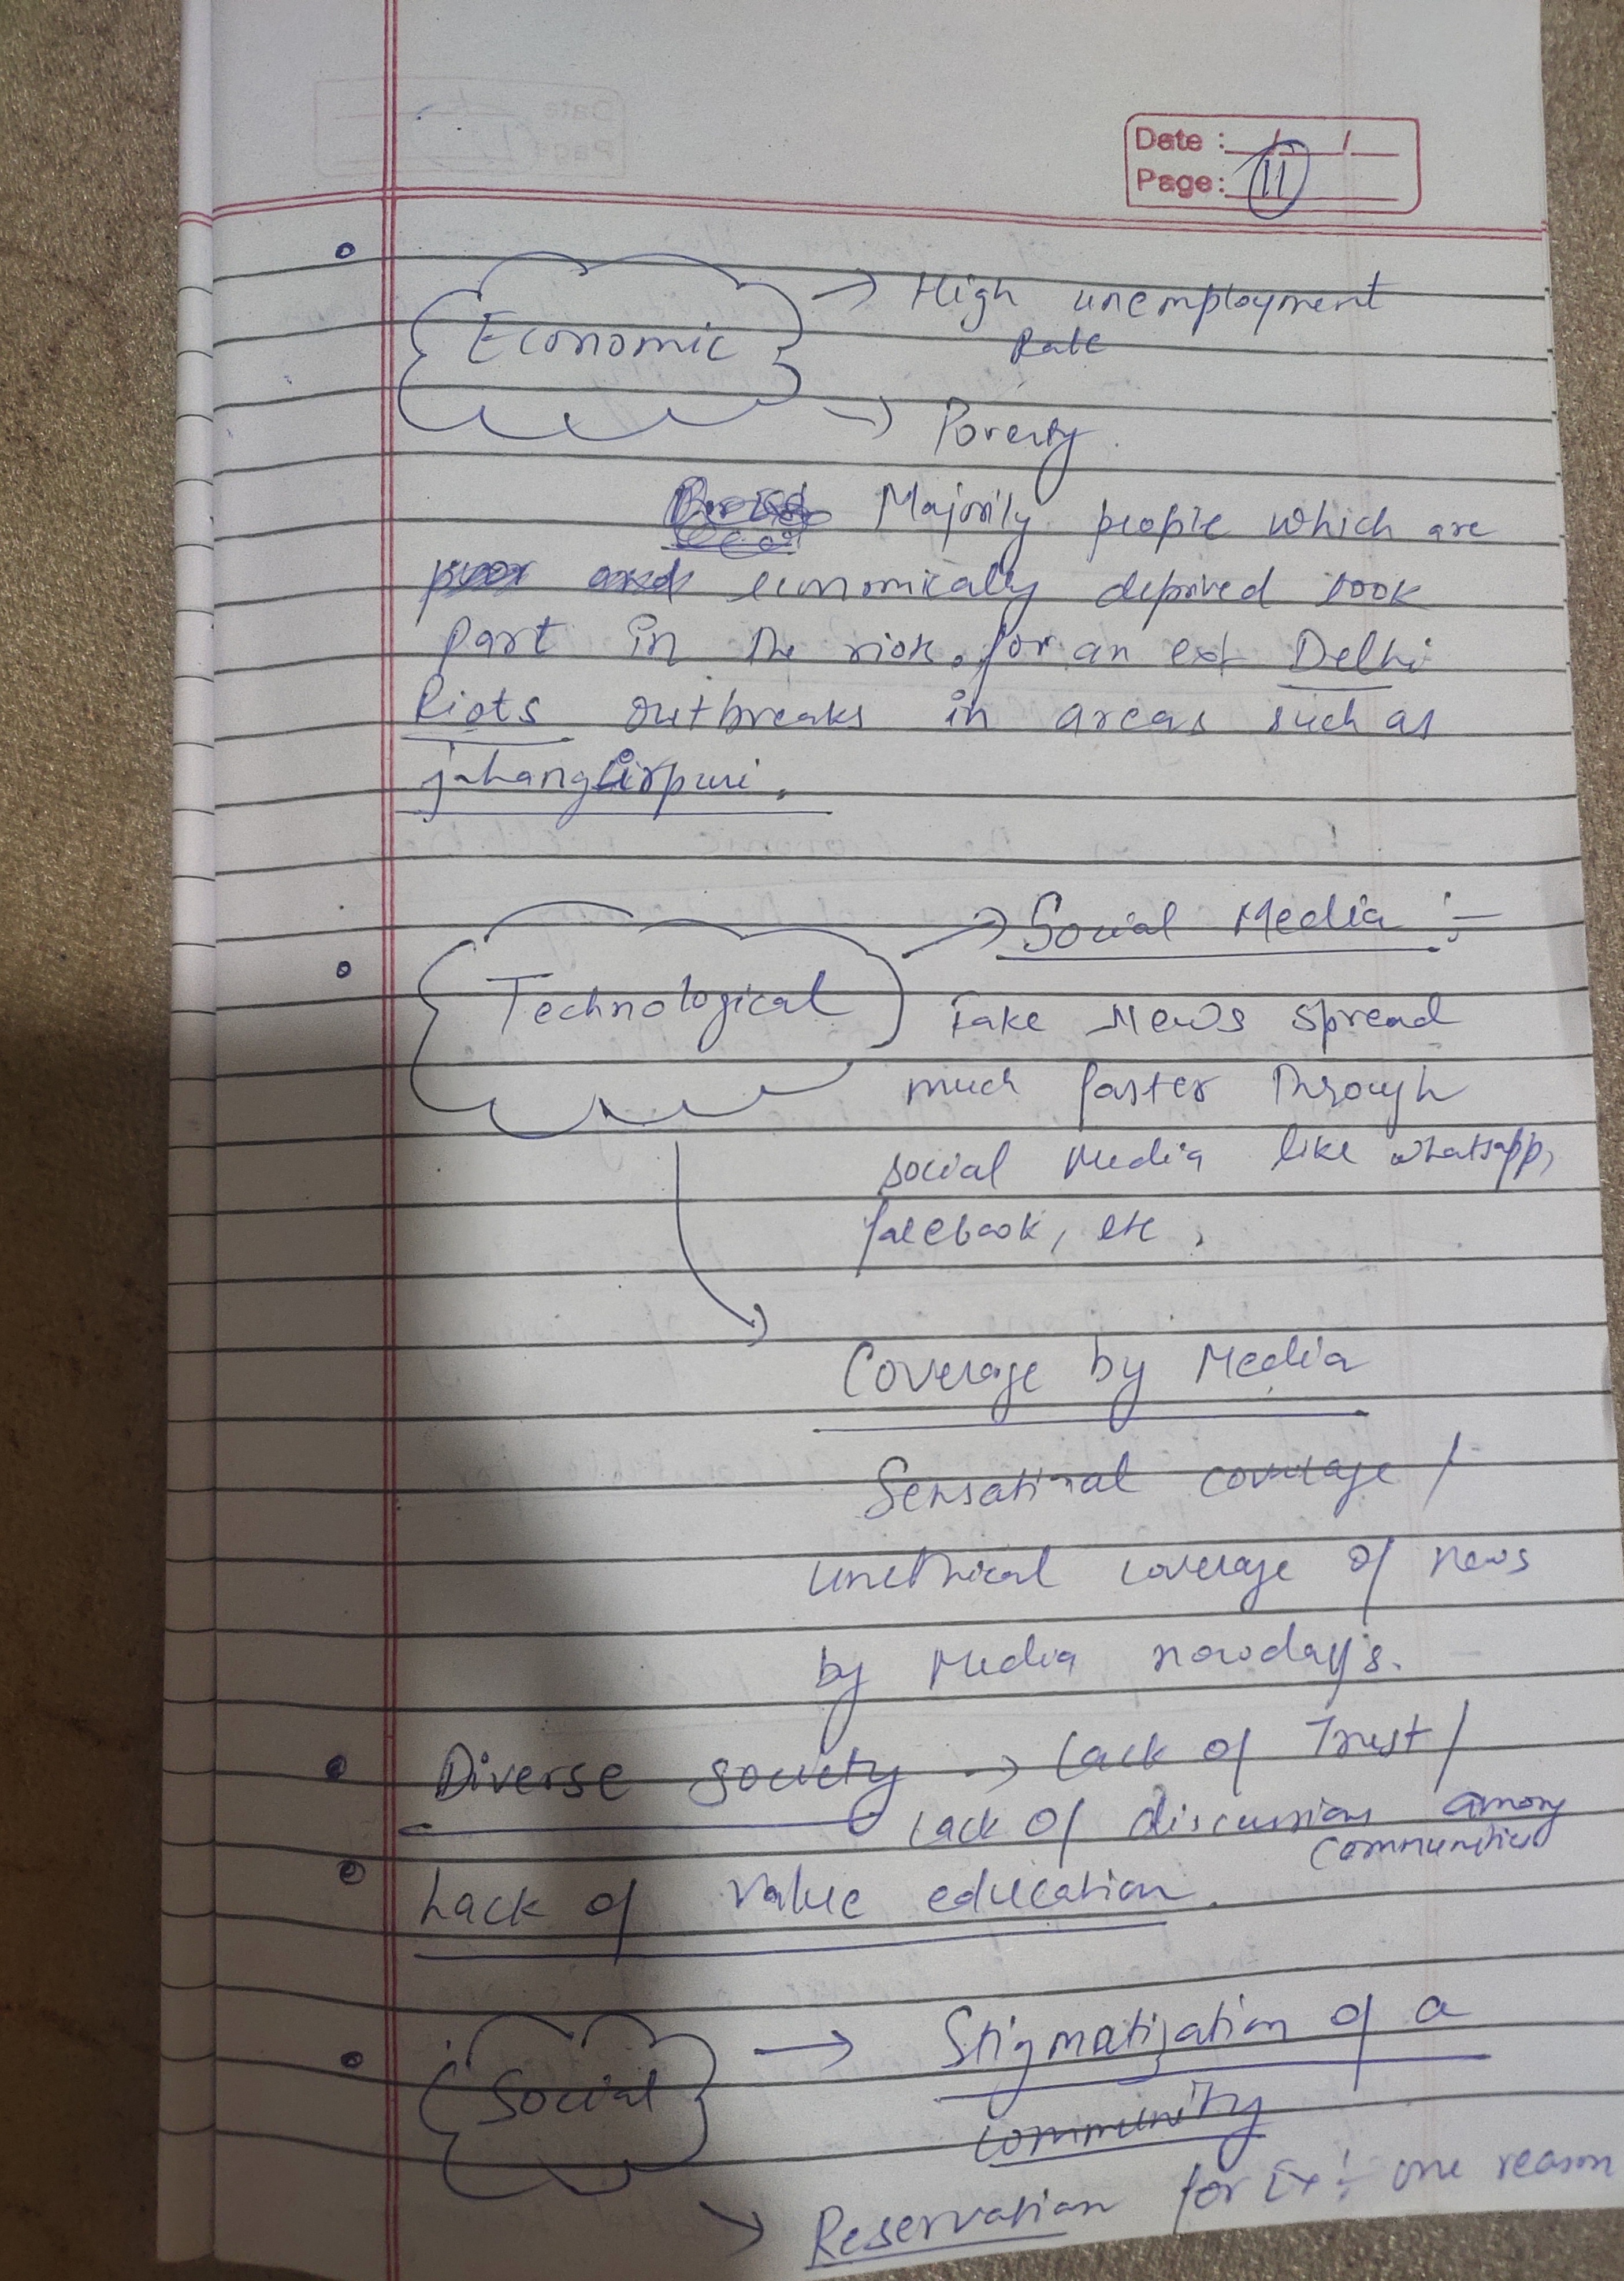 Date : / /
Page: 11
Economic → High unemployment
Rate
→ Poverty.
Majority people which are
economically deprived took
part in the riots. for an ex+ Delhi
Riots outbreaks in areas such as
jahangirpuri.
Technological → Social Media :-
Fake News spread
much faster through
social Media like whatsapp,
facebook, etc.
Coverage by Media
Sensational coverage /
unethical coverage of news
by Media nowday's.
Diverse society → Lack of Trust /
Lack of discussions among
communities
Lack of value education.
Social → Stigmatization of a
community
→ Reservation for Ex :- one reason